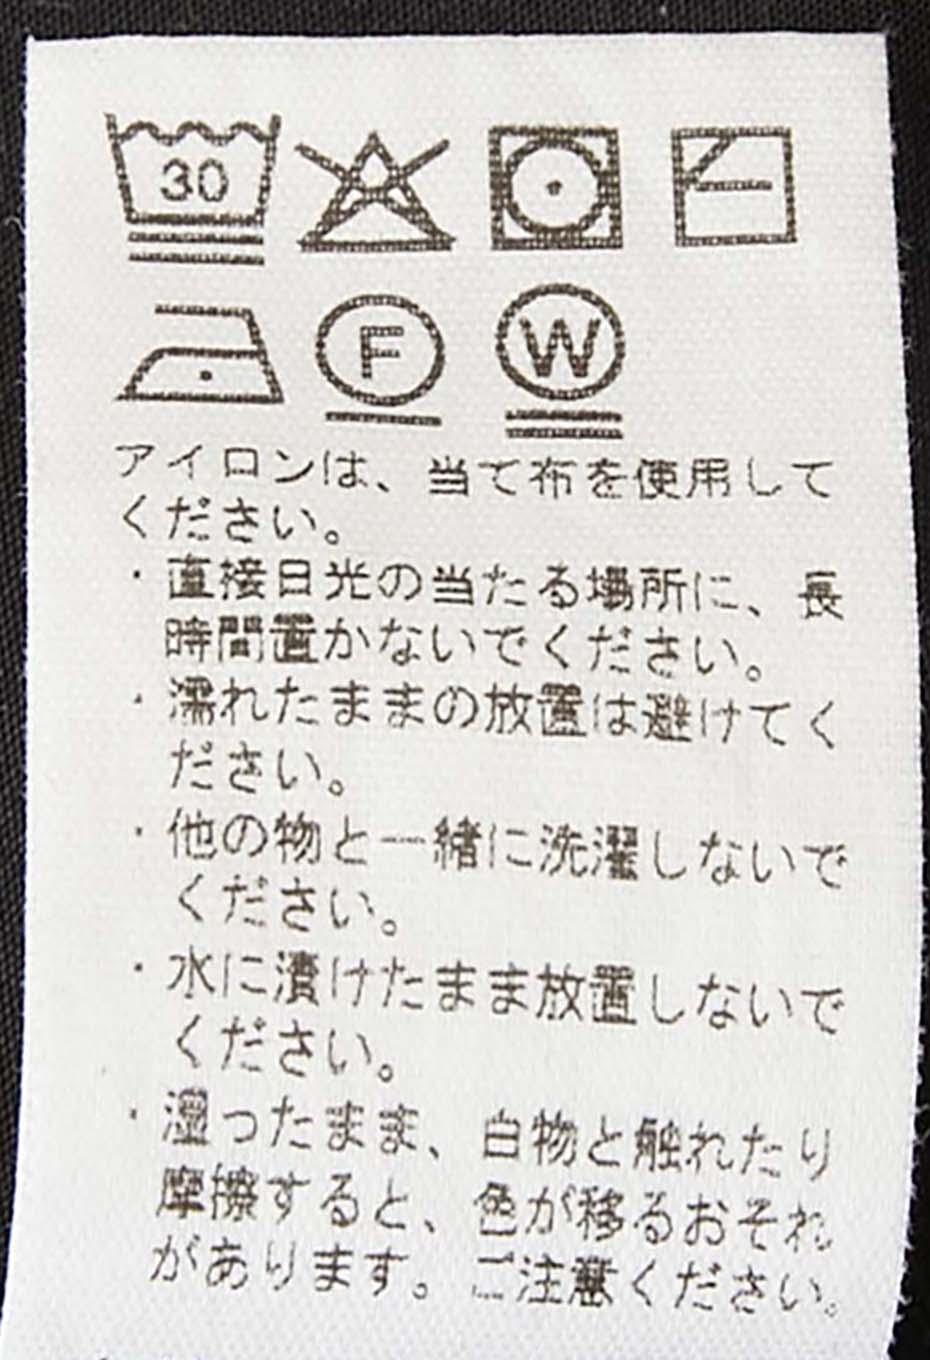 30
F W
アイロンは、当て布を使用して
ください。
・直接日光の当たる場所に、長
時間置かないでください。
・濡れたままの放置は避けてく
ださい。
・他の物と一緒に洗濯しないで
ください。
・水に漬けたまま放置しないで
ください。
・湿ったまま、白物と触れたり
摩擦すると、色が移るおそれ
があります。ご注意ください。